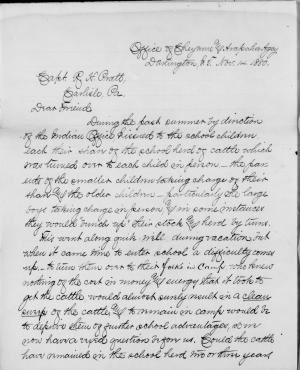 Office of Cheyenne & Arapaho Agcy
Darlington, I.T. Nov. 1880.
Capt. R H Pratt,
Carlisle, Pa.
Dear Friend
During the past summer by direction
of the Indian Office I issued to the school children
each their share of the school herd of cattle which
was turned over to each child in person – the par-
ents of the smaller children taking charge of their
share & the older children – particularly the large
boys taking charge in person & in some instances
they would bunch up their stock & herd by turns.
This went along quite well during vacation but
when it came time to enter school a difficulty comes
up – to turn them over to their folks in Camp who knew
nothing of the cost in money & energy that it took to
get the cattle would almost surely result in a clean
swoop of the cattle, & to remain in camp would be
to deprive them of further school advantages so we
now have a vexed question upon us. Could the cattle
have remained in the school herd two or three years